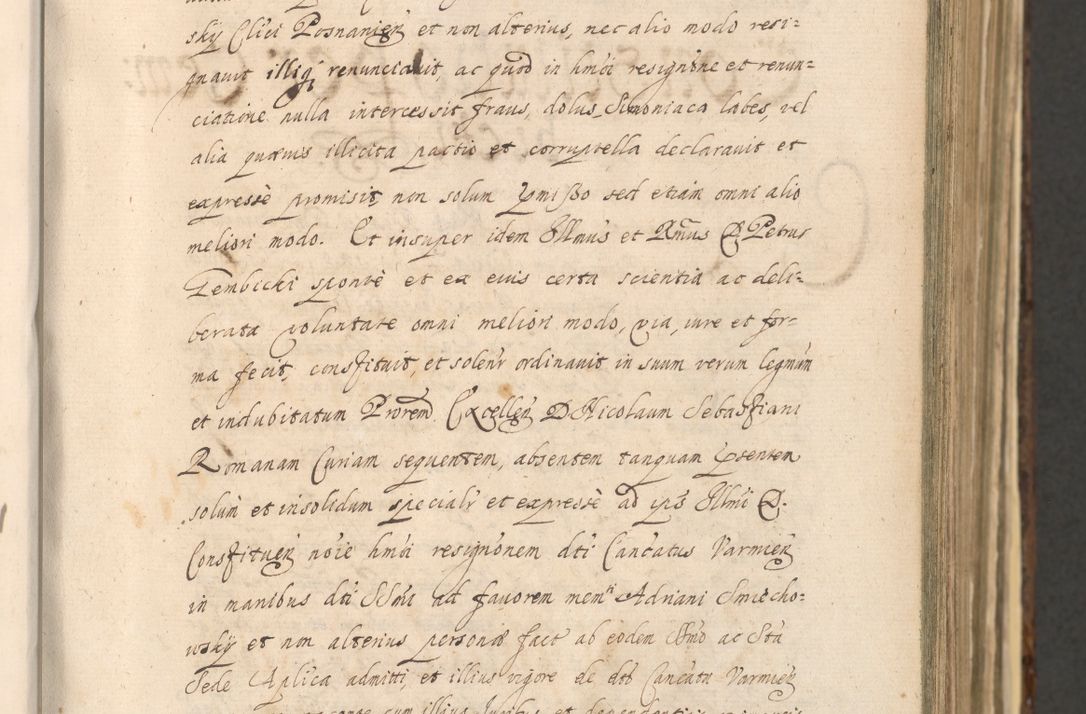 skÿ Clici Posnanień et non alterius, nec alio modo resi=
gnauit illiq renunciauit, ac quod in hmõi resignõne et renun=
ciatione nulla intercessit fraus, dolus, Simoniaca labes, vel
alia quæuis illicita pactio et corruptella declarauit et
expressè promisit, non solum pmisso sed etiam omni alio
meliori modo. Et insuper idem Illmus et Rmus D Petrus
Gembicki spontè et ex eius certa scientia ac deli=
berata voluntate omni meliori modo, via, iure et for=
ma fecit, constituit, et solenr ordinauit in suum verum legmum
et indubitatum Prorem Excellen D Nicolaum Sebastiani
Romanam Curiam sequentem, absentem tanquam psentem
solum et insolidum specialr et expressè ad ips Illmi D.
Constituen noie hmõi resignonem dti Cancatus Varmien
in manibus dti SSmi ad fauorem mem Adriani Smiecho=
wskÿ et non alterius personæ fact ab eodem SSmo ac Sta
Sede Aplica admitti, et illius vigore de dto Cancatu Varmien
cum illius Iuribus et dependentiis